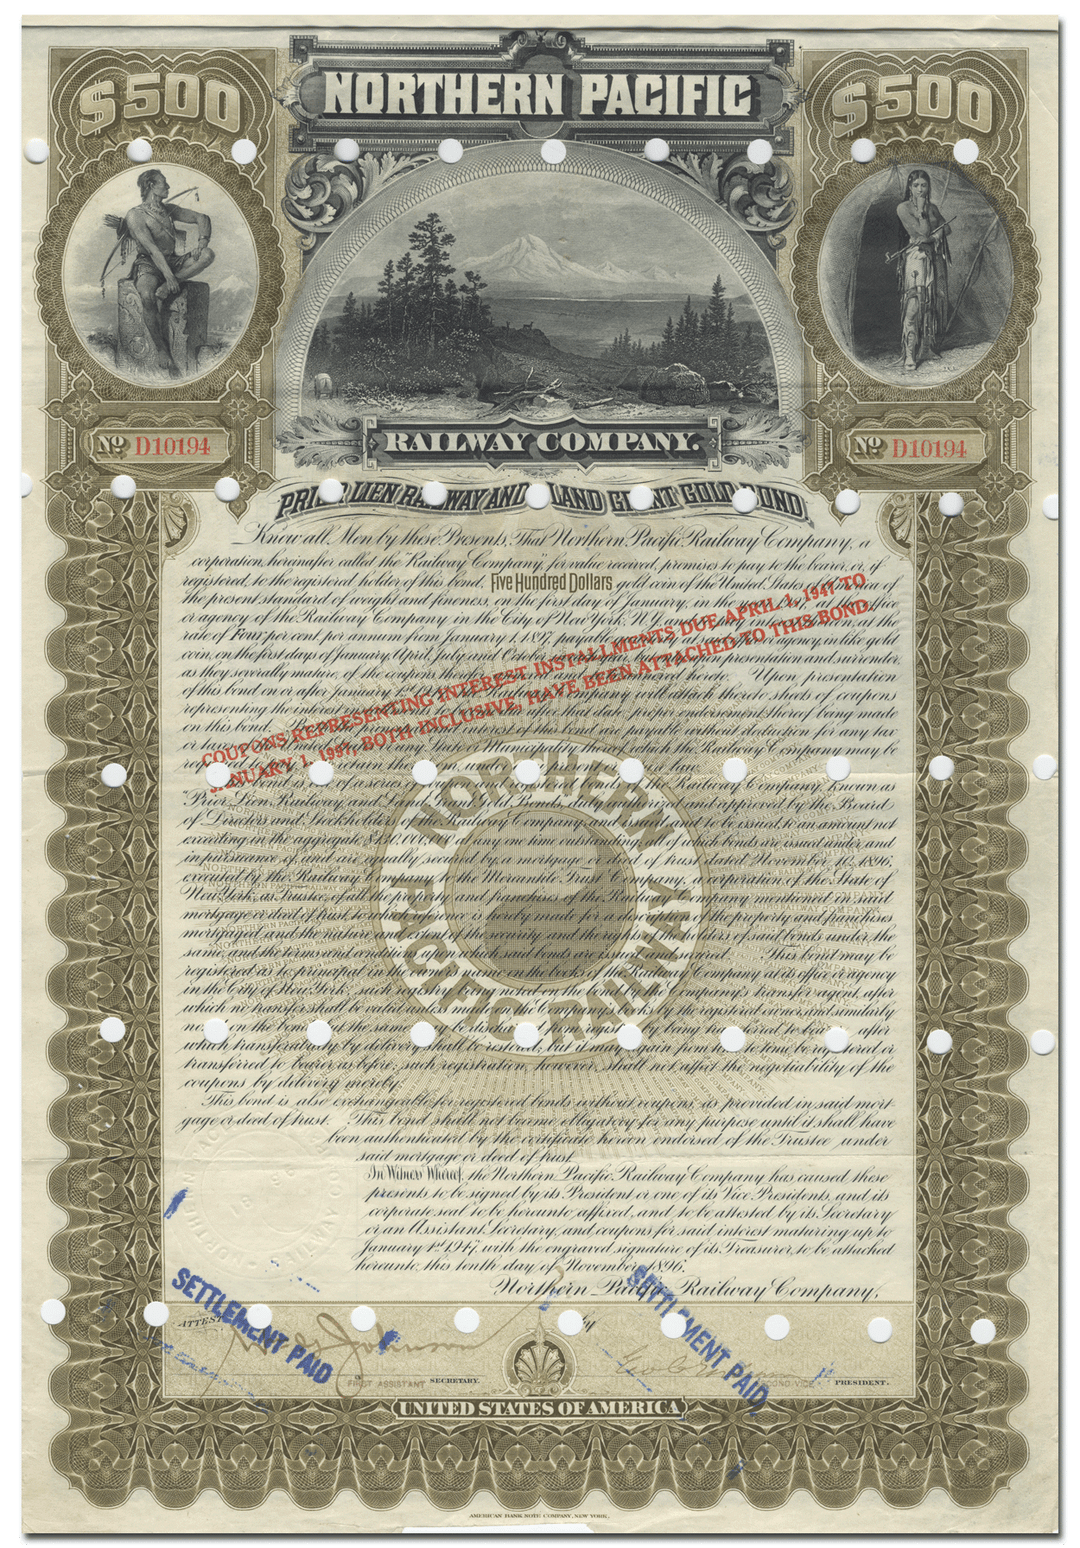 $500
NORTHERN PACIFIC
$500
RAILWAY COMPANY.
No D10194
No D10194
PRIOR LIEN RAILWAY AND LAND GRANT GOLD BOND.
Know all Men by these Presents, That Northern Pacific Railway Company, a
corporation, hereinafter called the "Railway Company," for value received, promises to pay to the bearer, or, if
registered, to the registered holder of this bond, Five Hundred Dollars gold coin of the United States of America of
the present standard of weight and fineness, on the first day of January, in the year 1997, at the office
or agency of the Railway Company in the City of New York, N.Y., and to pay interest thereon at the
rate of Four per cent. per annum from January 1, 1897, payable at such office or agency, in like gold
coin, on the first days of January, April, July and October in each year, but only upon presentation and surrender,
as they severally mature, of the coupons therefor annexed hereto. Upon presentation
of this bond on or after January 1, 1947, the Railway Company will attach thereto sheets of coupons
representing the interest to become due after that date, proper endorsement thereof being made
on this bond. Both the principal and interest of this bond are payable without deduction for any tax
or taxes of the United States or any State or Municipality thereof which the Railway Company may be
required to pay or retain therefrom, under any present or future law.
COUPONS REPRESENTING INTEREST INSTALLMENTS DUE APRIL 1, 1947 TO
JANUARY 1, 1997, BOTH INCLUSIVE, HAVE BEEN ATTACHED TO THIS BOND.
This bond is one of a series of coupon and registered bonds of the Railway Company, known as
"Prior Lien Railway and Land Grant Gold Bonds, duly authorized and approved by the Board
of Directors and Stockholders of the Railway Company, and issued, and to be issued, to an amount not
exceeding in the aggregate $130,000,000 at any one time outstanding, all of which bonds are issued under, and
in pursuance of, and are equally secured by, a mortgage or deed of trust dated November 10, 1896,
executed by the Railway Company to the Mercantile Trust Company, a corporation of the State of
New York, as Trustee, of all the property and franchises of the Railway Company mentioned in said
mortgage or deed of trust, to which reference is hereby made for a description of the property and franchises
mortgaged, and the nature and extent of the security, and the rights of the holders of said bonds under the
same, and the terms and conditions upon which said bonds are issued and secured. This bond may be
registered as to principal in the owner's name on the books of the Railway Company at its office or agency
in the City of New York, such registry being noted on the bond by the Company's transfer agent, after
which no transfer shall be valid unless made on the Company's books by the registered owner, and similarly
noted on the bond; but the same may be discharged from registry by being transferred to bearer, after
which transferability by delivery shall be restored; but it may again from time to time be registered or
transferred to bearer as before; such registration, however, shall not affect the negotiability of the
coupons by delivery merely.
This bond is also exchangeable for registered bonds without coupons, as provided in said mort-
gage or deed of trust. This bond shall not become obligatory for any purpose until it shall have
been authenticated by the certificate hereon endorsed of the Trustee under
said mortgage or deed of trust.
In Witness Whereof, the Northern Pacific Railway Company has caused these
presents to be signed by its President or one of its Vice Presidents, and its
corporate seal to be hereunto affixed, and to be attested by its Secretary
or an Assistant Secretary, and coupons for said interest maturing up to
January 1st 1947, with the engraved signature of its Treasurer, to be attached
hereunto, this tenth day of November, 1896.
Northern Pacific Railway Company,
NORTHERN PACIFIC RAILWAY
SETTLEMENT PAID
SETTLEMENT PAID
ATTEST by
Johnson
FIRST ASSISTANT SECRETARY.
SECOND VICE PRESIDENT.
UNITED STATES OF AMERICA
AMERICAN BANK NOTE COMPANY, NEW YORK.